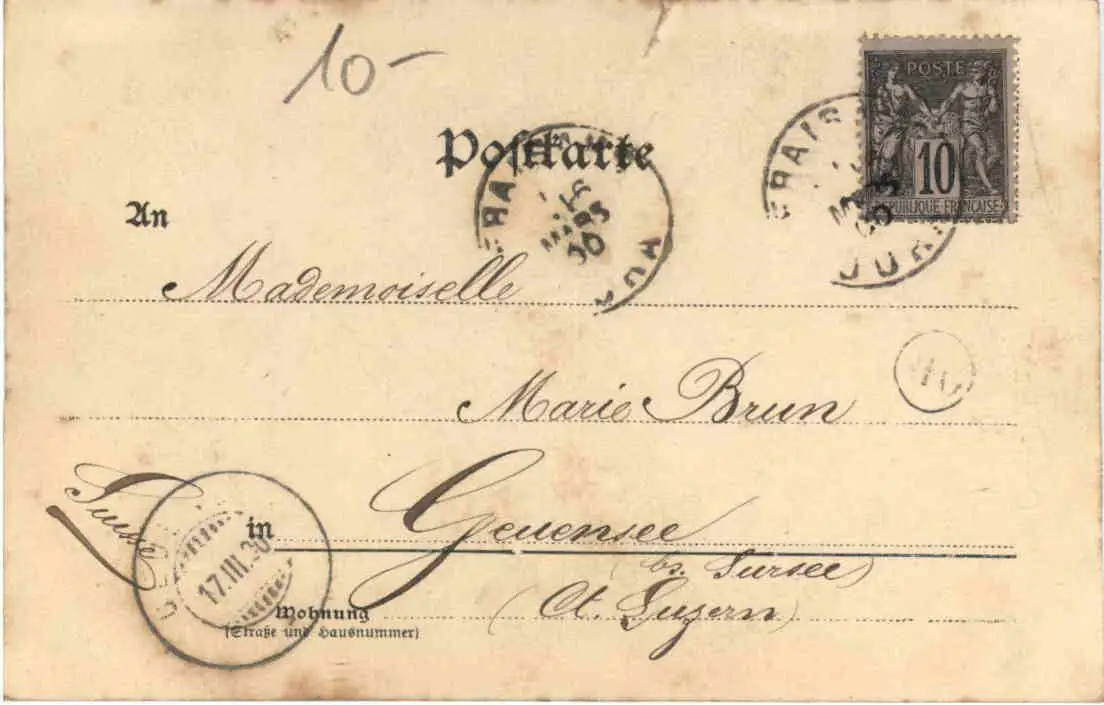 10-
POSTE
10
REPUBLIQUE FRANÇAISE
Postkarte
FRAIS
MARS
00
An
Mademoiselle
Marie Brun
Suisse
in
Geuensee
(bz. Sursee)
(Ct. Luzern)
17.III.
Wohnung
(Straße und Hausnummer)